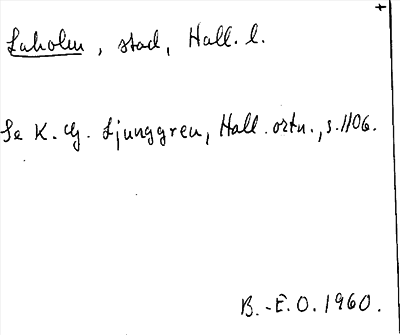 Laholm, stad, Hall. l.
Se K. G. Ljunggren, Hall. ortn., s. 106.
B.-E.O. 1960.